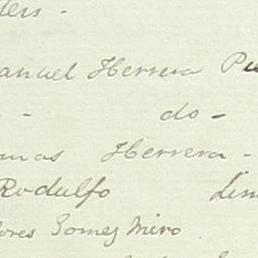 ders -
anuel Herrera Pu
- do -
mas Herrera -
Rodulfo Lim
ores Gomez Miro